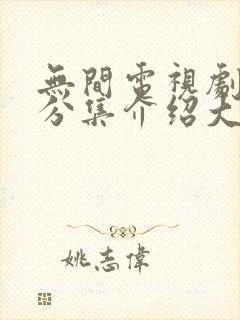 無間電視劇
分集介紹大
姚志偉